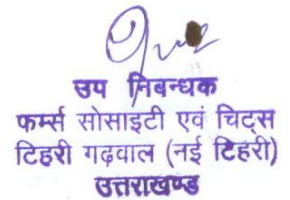 उप निबन्धक
फर्म्स सोसाइटी एवं चिट्स
टिहरी गढ़वाल (नई टिहरी)
उत्तराखण्ड